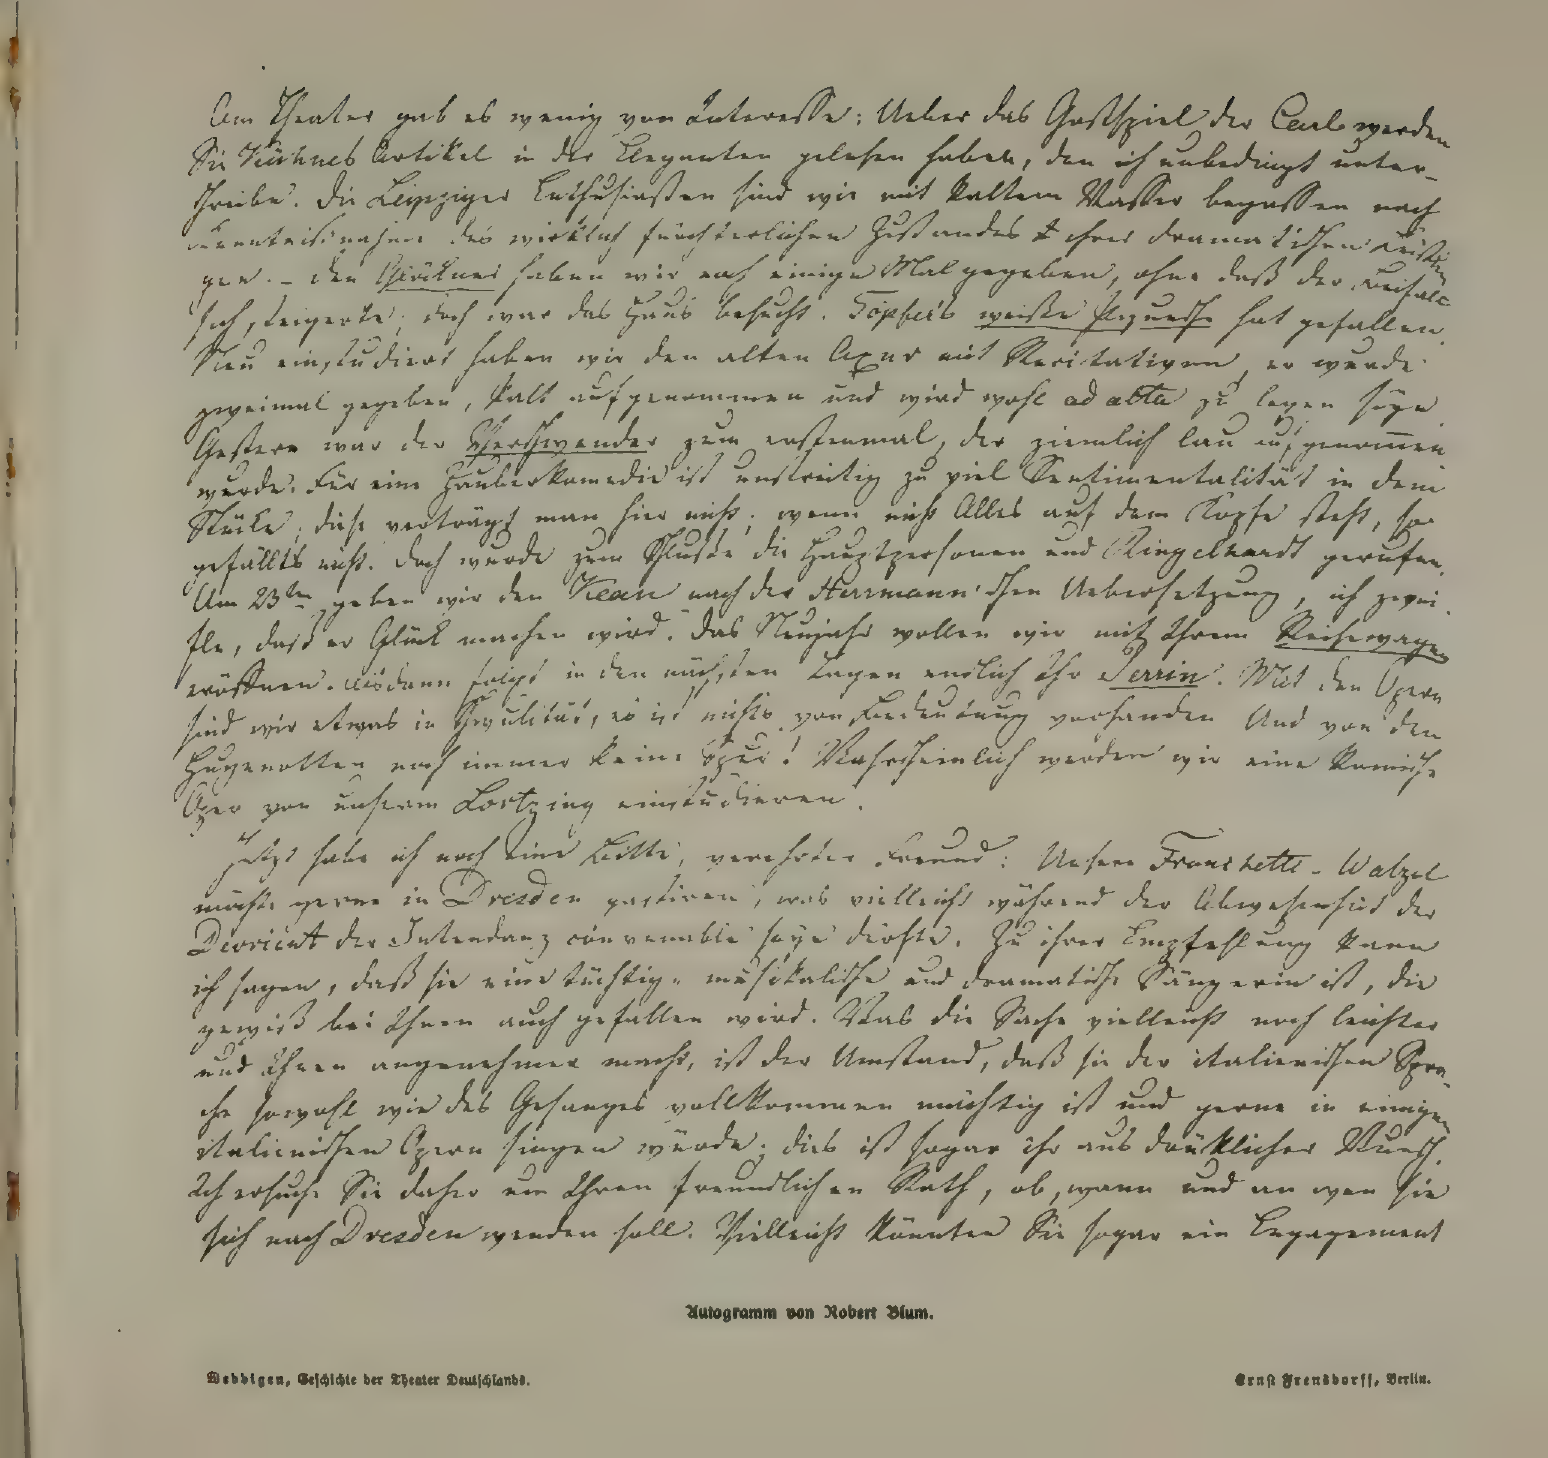 Am Theater gab es wenig von Interesse: Ueber das Gastspiel der Carl werden
Sie Kühnes Artikel in der Eleganten gelesen haben, den ich unbedingt unter-
schreibe. Die Leipziger Enthusiasten sind wie mit kaltem Wasser begossen nach
Kenntnißnahme des wirklich fürchterlichen Zustandes ihrer dramatischen
gen. – Den haben wir noch einige Mal gegeben, ohne daß der Beifall
sich steigerte; doch war das Haus besucht. Töpfer's weiße hat gefallen.
Neu einstudiert haben wir den alten Axur mit Recitativen, er wurde
zweimal gegeben, kalt aufgenommen und wird wohl ad acta zu legen seyn.
Gestern war der Verschwender zum erstenmal, der ziemlich lau aufgenommen
wurde. Für eine Zauberkomedie ist unstreitig zu viel Sentimentalität in dem
Stücke; diese verträgt man hier nicht; wenn nicht Alles auf dem Kopfe steht, so
gefällts nicht. Doch wurde zum Schluße die Hauptpersonen und Ringelhardt gerufen.
Am 23ten geben wir den Kean nach der Herrmann'schen Uebersetzung, ich zwei-
fle, daß er Glück machen wird. Das Neujahr wollen wir mit Ihrem Reisewagen
eröffnen. Alsdann folgt in den nächsten Tagen endlich Ihr Perrin. Mit den Opern
sind wir etwas in Schwulität, es ist nichts von Bedeutung vorhanden Und von den
Hugenotten noch immer keine Spur! Wahrscheinlich werden wir eine komische
Oper von unserm Lortzing einstudieren.
Jetzt habe ich noch eine Bitte, verehrter Freund: Unsere Franchetti-Walzel
möchte gerne in Dresden gastiren, was vielleicht während der Abwesenheit der
Devrient der Intendanz convenable seyn dürfte. Zu ihrer Empfehlung kann
ich sagen, daß sie eine tüchtige musikalische und dramatische Sängerin ist, die
gewiß bei Ihnen auch gefallen wird. Was die Sache vielleicht noch leichter
und Ihnen angenehmer macht, ist der Umstand, daß sie der italienischen Spra-
che sowohl wie des Gesanges vollkommen mächtig ist und gerne in einigen
italienischen Opern singen würde; dies ist sogar ihr ausdrücklicher Wunsch.
Ich ersuche Sie daher um Ihren freundlichen Rath, ob, wann und an wen sie
sich nach Dresden wenden soll. Vielleicht könnten Sie sogar ein Engagement
Autogramm von Robert Blum.
Weddigen, Geschichte der Theater Deutschlands.
Ernst Frensdorff, Berlin.